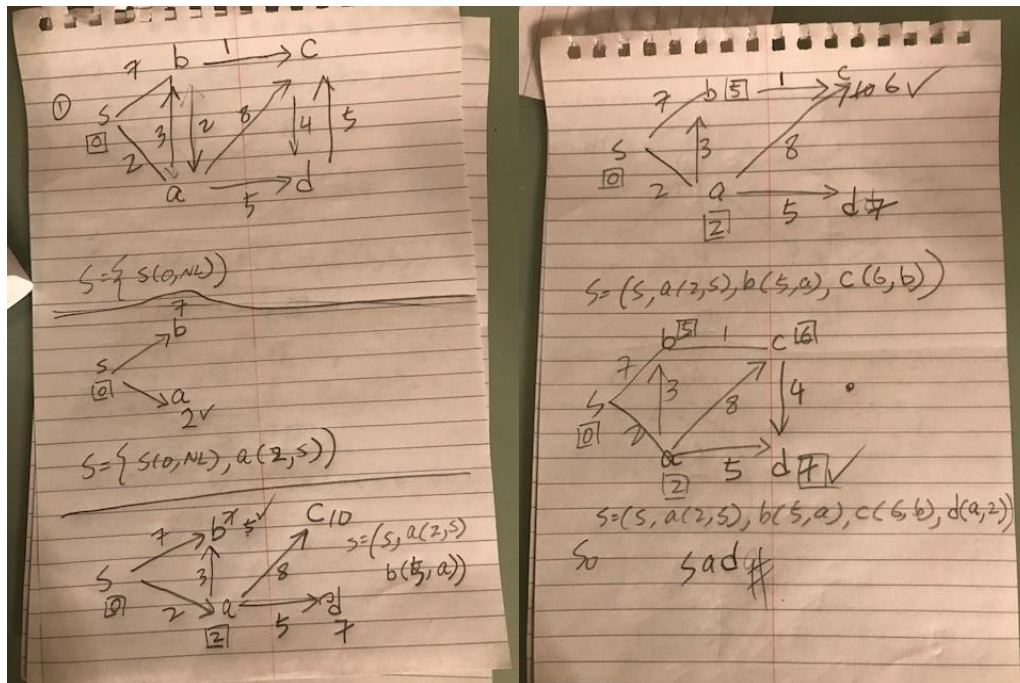 ①
7 b 1 c
s 3 2 8 4 5
0 2
a 5 d
S={ s(0,NL))
7
b
s
0 a
2✓
S={ s(0,NL), a(2,s))
7 b 7 5✓ c 10
s=(s, a(2,s)
b(5,a))
s 3 8
0 2 a 5 d
2 7
7 b 5 1 c
10 6✓
s 3 8
0 2 a 5 d 7
2
S=(s, a(2,s), b(5,a), c(6,b))
b 5 1 c 6
7 3 8 4
s
0 2 a 5 d 7✓
2
S=(s, a(2,s), b(5,a), c(6,b), d(a,2))
So s a d #